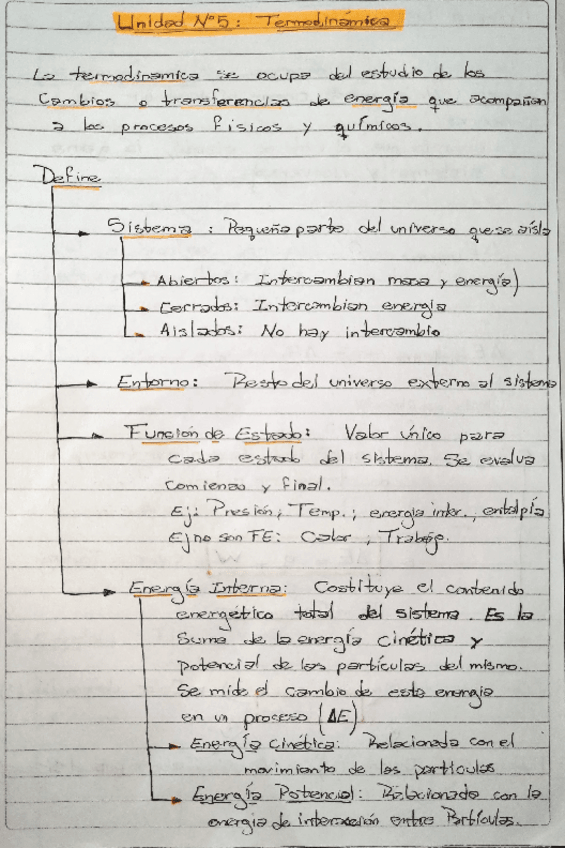 Unidad N°5: Termodinámica
La termodinamica se ocupa del estudio de los
Cambios o transferencias de energía que acompañan
a los procesos físicos y químicos.
Define
Sistema : Pequeña parte del universo que se aísla
Abiertos: Intercambian masa y energía)
Cerrados: Intercambian energía
Aislados: No hay intercambio
Entorno: Resto del universo externo al sistema
Función de Estado: Valor único para
cada estado del sistema. Se evalua
comienzo y final.
Ej: Presión, Temp.; energía inter., entalpía
Ej no son FE: Calor, Trabajo.
Energía Interna: Costituye el contenido
energético total del sistema. Es la
Suma de la energía cinética y
potencial de las partículas del mismo.
Se mide el cambio de esta energía
en un proceso (ΔE)
Energía Cinética: Relacionada con el
movimiento de las partículas
Energía Potencial: Relacionada con la
energía de interacción entre Partículas.